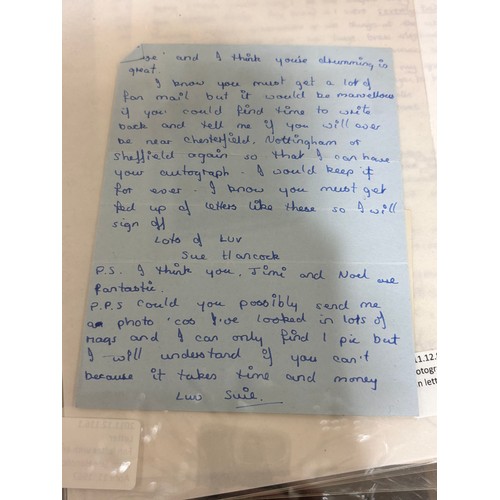 and I think you're drumming is
great.
I know you must get a lot of
fan mail but it would be marvellous
if you could find time to write
back and tell me if you will ever
be near Chesterfield, Nottingham or
Sheffield again so that I can have
your autograph. I would keep it
for ever. I know you must get
fed up of letters like these so I will
sign off
Lots of Luv
Sue Hancock
P.S. I think you, Jimi and Noel are
fantastic.
P.P.S Could you possibly send me
a photo 'cos I've looked in lots of
mags and I can only find 1 pic but
I will understand if you can't
because it takes time and money
Luv Sue.